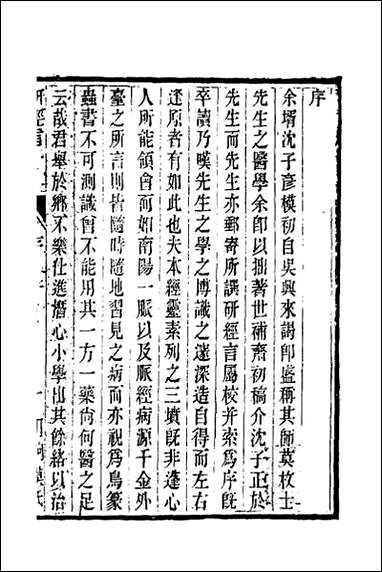 序
余壻沈子彥模初自吳興來謁卽盛稱其師莫枚士
先生之醫學余卽以拙著世補齋初稿介沈子正於
先生而先生亦郵寄所譔研經言屬校并索爲序旣
卒讀乃嘆先生之學之博識之遠深造自得而左右
逢原者有如此也夫本經靈素列之三墳旣非蓬心
人所能領會而如南陽一脈以及脈經病源千金外
臺之所言則皆隨時隨地習見之病而亦視爲鳥篆
蟲書不可測識曾不能用其一方一藥尙何醫之足
云哉君舉於鄉不樂仕進擔心小學出其餘緒以治
研經言
序